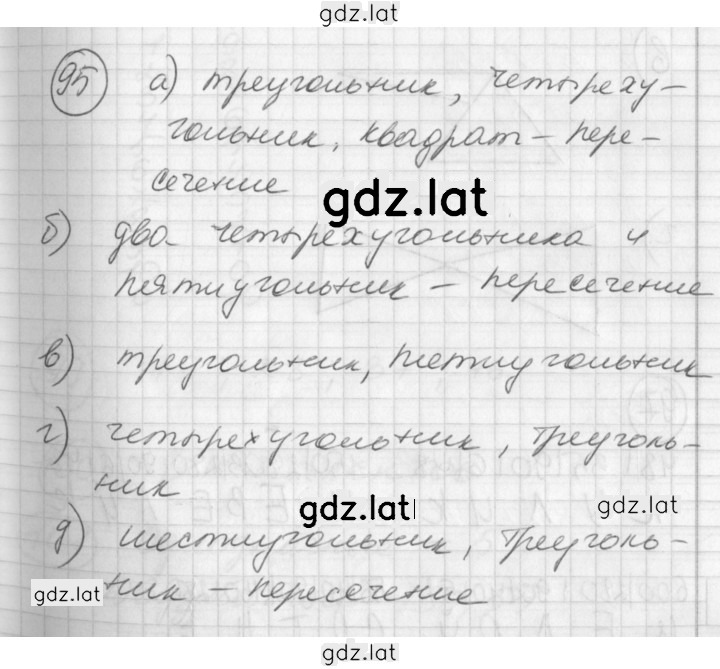 gdz.lat
95 а) треугольник, четыреху-
гольник, квадрат - пере-
сечение
gdz.lat
б) два четырехугольника и
пятиугольник - пересечение
в) треугольник, пятиугольник
г) четырехугольник, треуголь-
ник
gdz.lat
gdz.lat
д) шестиугольник, треуголь-
gdz.lat
ник - пересечение
gdz.lat